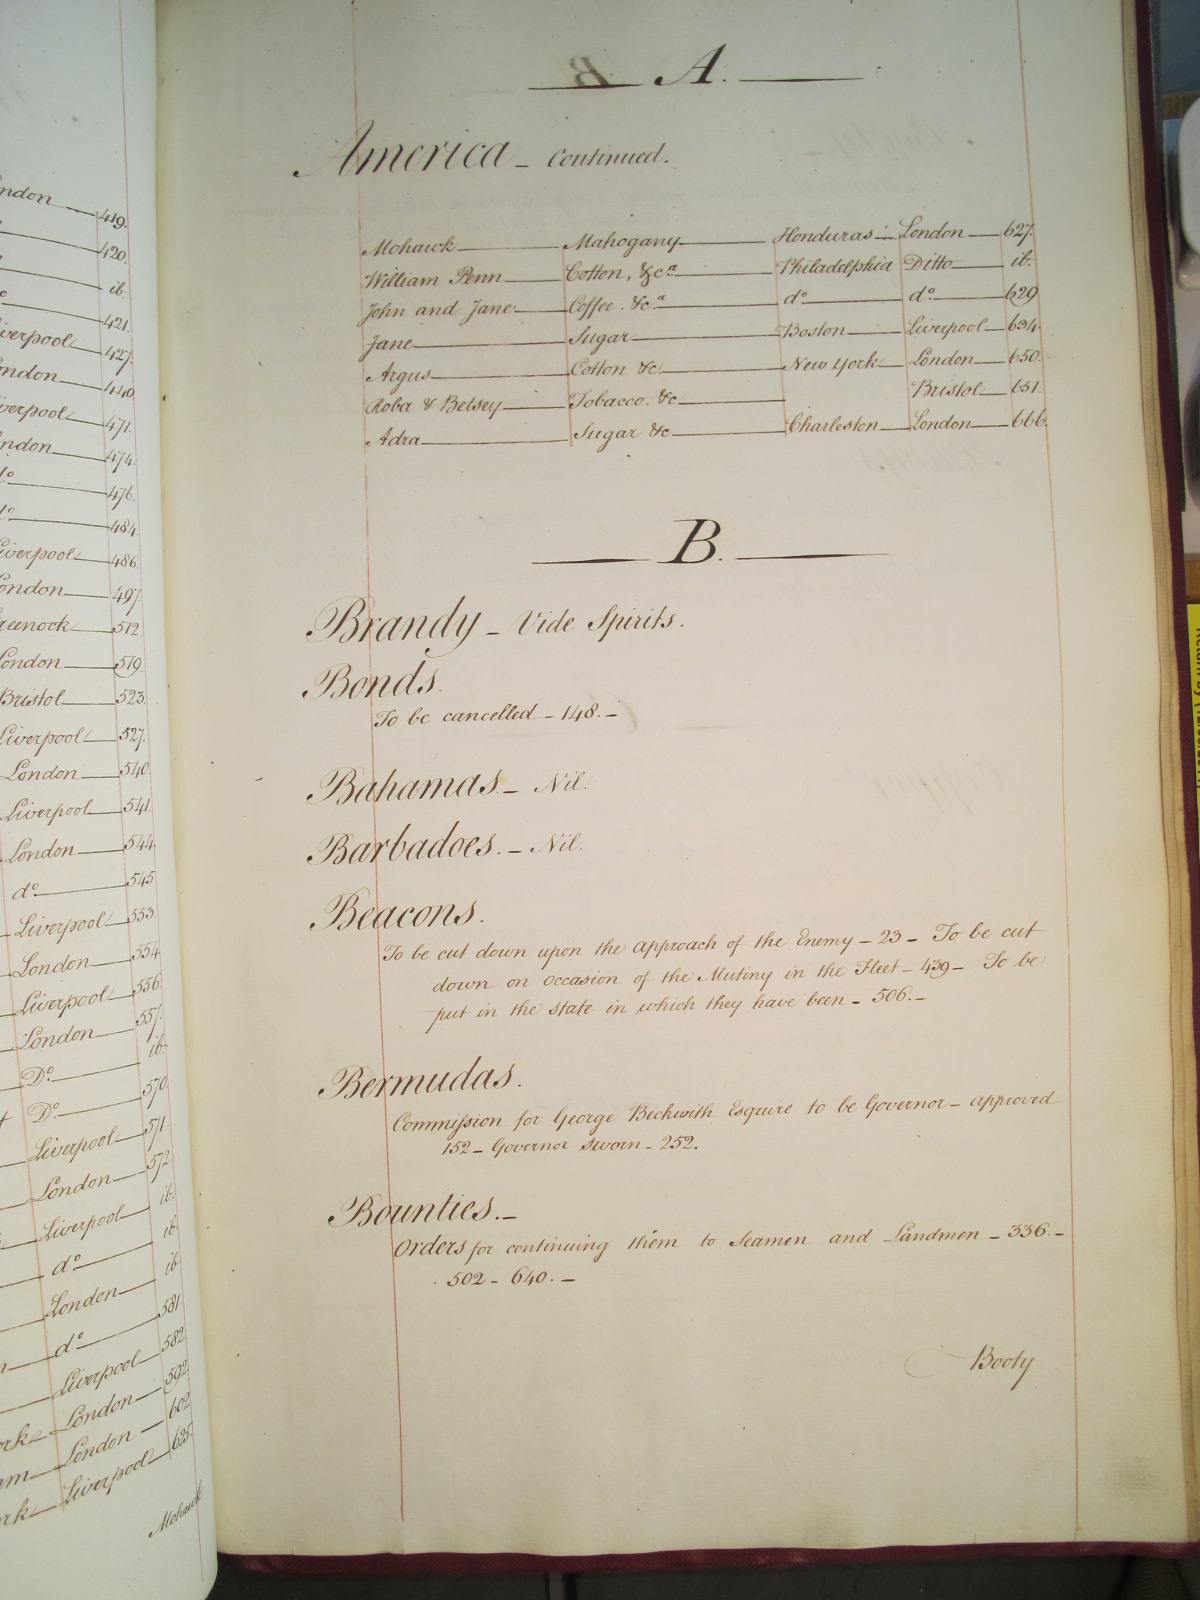 ndon 419.
420.
ib.
421.
iverpool 427.
ndon 440.
verpool 471.
ndon 474.
do 476.
do 484.
iverpool 486.
ondon 497.
reenock 512.
London 519.
Bristol 523.
Liverpool 527.
London 540.
Liverpool 541.
London 544.
do 545.
Liverpool 553.
London 554.
Liverpool 556.
London 557.
Do ib.
Do 570.
Liverpool 571.
London 572.
Liverpool ib.
do ib.
London ib.
do 581.
Liverpool 582.
rk London 592.
m London 602.
rk Liverpool 625.
Mohawk
A.
America – Continued.
Mohawk Mahogany Honduras London 627.
William Penn Cotton, &ca Philadelphia Ditto ib.
John and Jane Coffee. &ca do do 629
Jane Sugar Boston Liverpool 634.
Argus Cotton &c New York London 650.
Roba & Betsey Tobacco. &c Bristol 651.
Adra Sugar &c Charleston London 666.
B.
Brandy – Vide Spirits.
Bonds.
To be cancelled – 148. –
Bahamas. – Nil.
Barbadoes. – Nil.
Beacons.
To be cut down upon the approach of the Enemy – 23 – To be cut
down on occasion of the Mutiny in the Fleet – 439 – To be
put in the state in which they have been – 506. –
Bermudas.
Commission for George Beckwith Esquire to be Governor – approved
152 – Governor sworn – 252.
Bounties. –
Orders for continuing them to Seamen and Landmen – 336. –
502 – 640. –
Booty